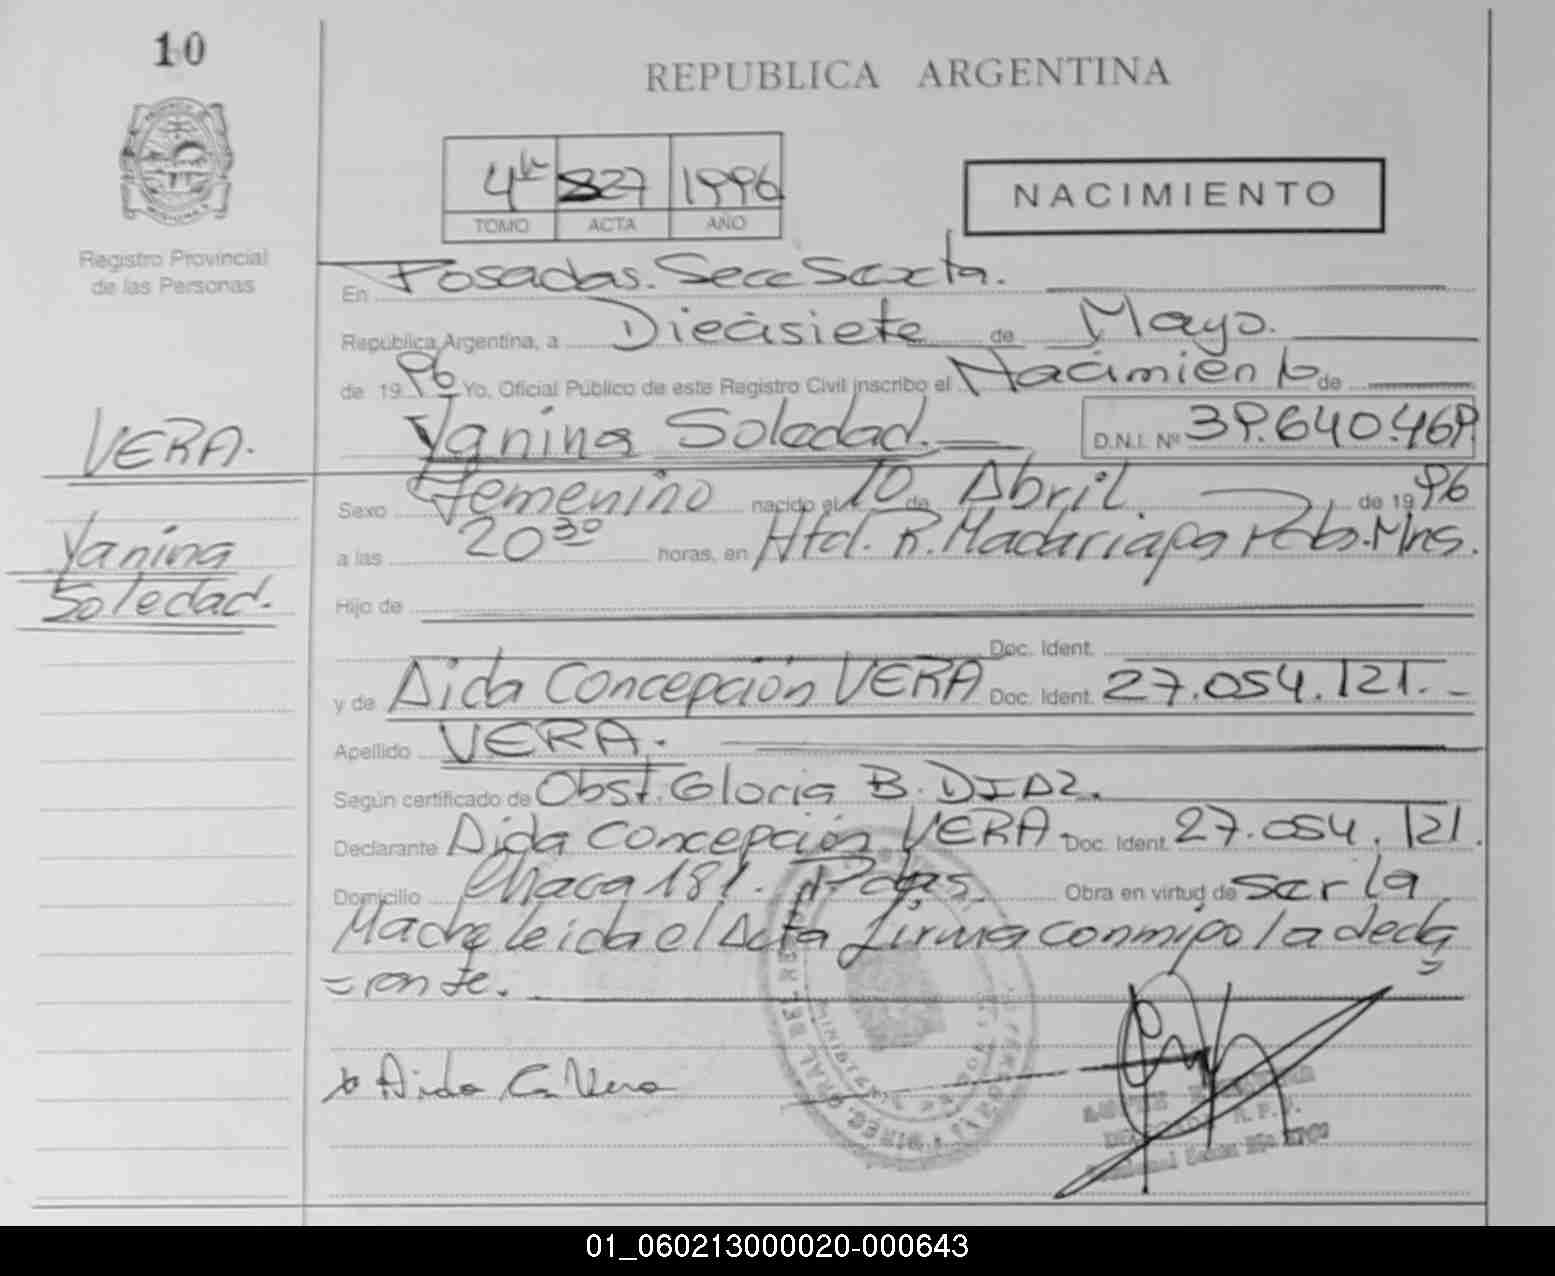 10
REPUBLICA ARGENTINA
827 1996
TOMO ACTA AÑO
NACIMIENTO
Registro Provincial
de las Personas
En Posadas. Secc Sexta.
República Argentina, a Diecisiete de Mayo.
de 1996 Yo, Oficial Público de este Registro Civil inscribo el Nacimiento de
Yanina Soledad. D.N.I. Nº 39.640.469
VERA.
Yanina
Soledad.
Sexo Femenino nacido el 10 de Abril. de 1996
a las 20 30 horas, en R. Madariaga Mnes.
Hijo de
Doc. Ident.
y de Aida Concepción VERA Doc. Ident. 27.054.121.-
Apellido VERA.
Según certificado de Obst. Gloria B. DIAZ.
Declarante Aida Concepción VERA Doc. Ident. 27.054.121.
Domicilio Pdas. Obra en virtud de ser la
Madre leida el Acta firma conmigo la decla
=rante.
Aida C. Vera
01_060213000020-000643